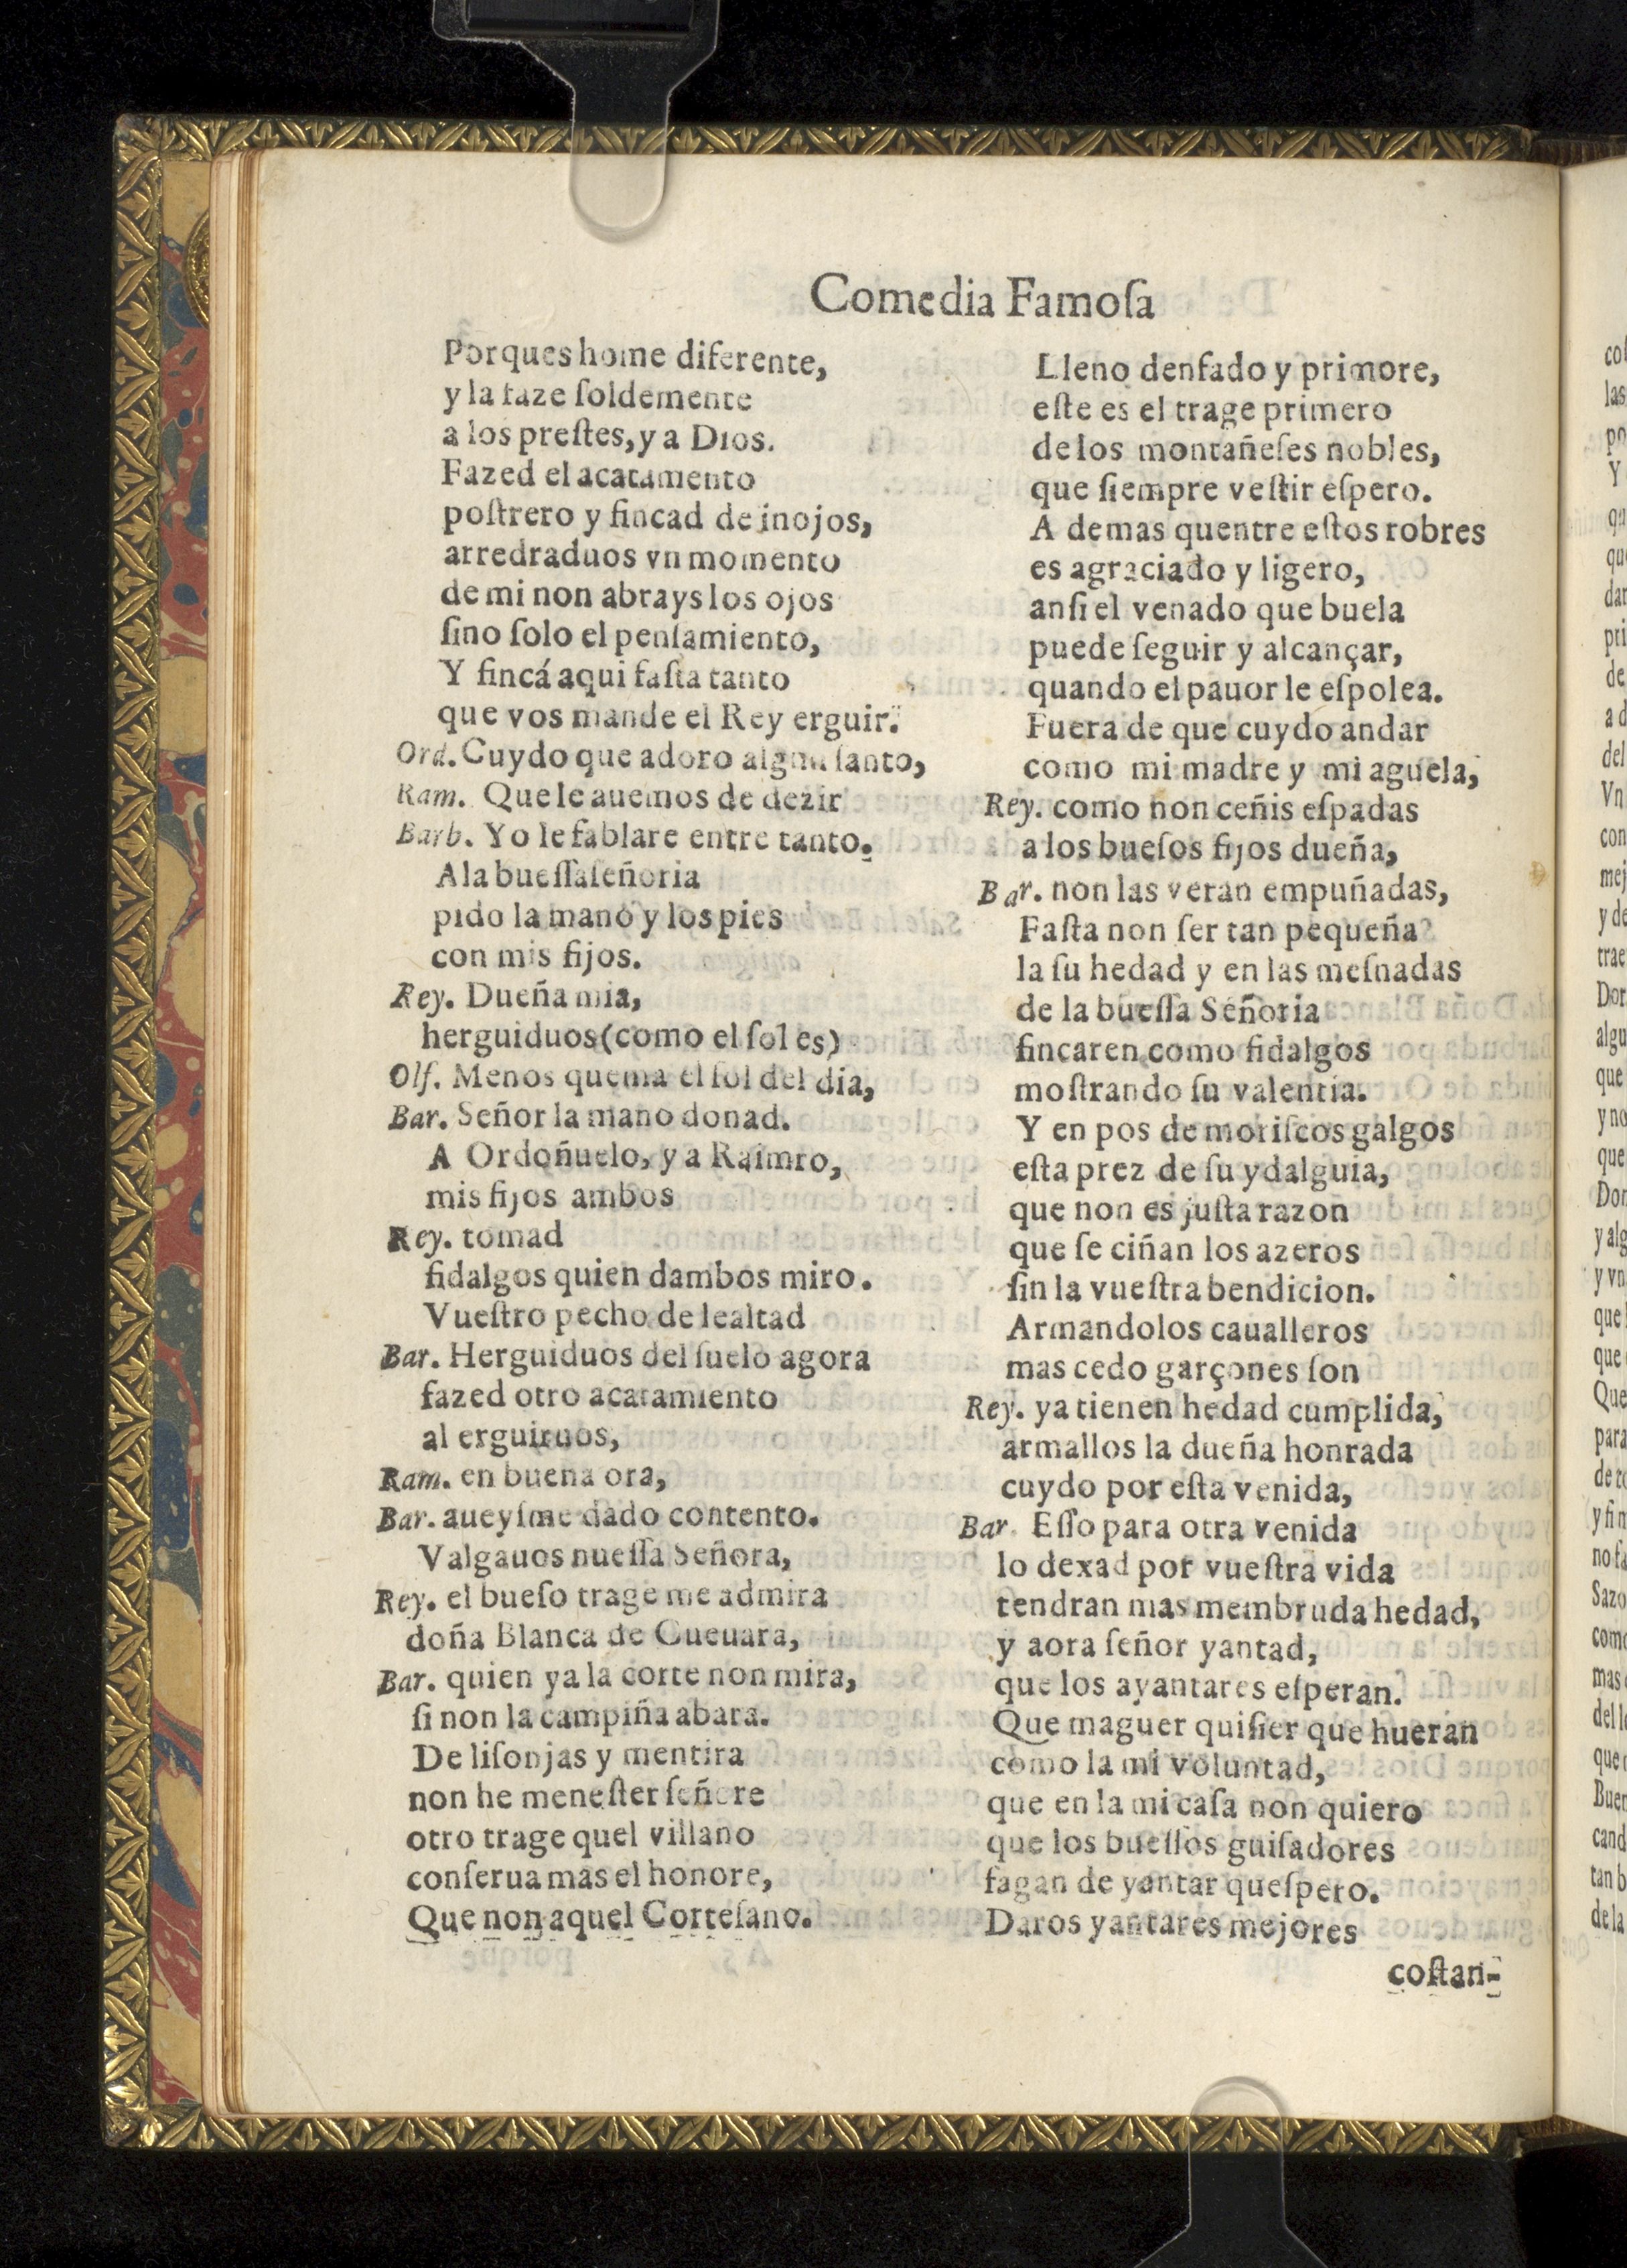 Comedia Famoſa
Porques home diferente,
y la faze ſoldemente
a los preſtes, y a Dios.
Fazed el acatamento
poſtrero y fincad de inojos,
arredraduos vn momento
de mi non abrays los ojos
ſino ſolo el penſamiento,
Y fincá aqui faſta tanto
que vos mande el Rey erguir.
Ord. Cuydo que adoro algun ſanto,
Ram. Que le auemos de dezir
Barb. Yo le fablare entre tanto.
A la bueſſa ſeñoria
pido la mano y los pies
con mis fijos.
Rey. Dueña mia,
herguiduos (como el ſol es)
Olf. Menos quema el ſol del dia,
Bar. Señor la mano donad.
A Ordoñuelo, y a Raimro,
mis fijos ambos
Rey. tomad
fidalgos quien dambos miro.
Vueſtro pecho de lealtad
Bar. Herguiduos del ſuelo agora
fazed otro acatamiento
al erguiruos,
Ram. en buena ora,
Bar. aueyſme dado contento.
Valgauos nueſſa Señora,
Rey. el bueſo trage me admira
doña Blanca de Gueuara,
Bar. quien ya la corte non mira,
ſi non la campiña abara.
De liſonjas y mentira
non he meneſter ſeñore
otro trage quel villano
conſerua mas el honore,
Que non aquel Corteſano.
Lleno denfado y primore,
eſte es el trage primero
de los montañeſes nobles,
que ſiempre veſtir eſpero.
A demas quentre eſtos robres
es agraciado y ligero,
anſi el venado que buela
puede ſeguir y alcançar,
quando el pauor le eſpolea.
Fuera de que cuydo andar
como mi madre y mi aguela,
Rey. como non ceñis eſpadas
a los bueſos fijos dueña,
Bar. non las veran empuñadas,
Faſta non ſer tan pequeña
la ſu hedad y en las meſnadas
de la bueſſa Señoria
fincaren como fidalgos
moſtrando ſu valentia.
Y en pos de moriſcos galgos
eſta prez de ſu ydalguia,
que non es juſta razon
que ſe ciñan los azeros
ſin la vueſtra bendicion.
Armandolos caualleros
mas cedo garçones ſon
Rey. ya tienen hedad cumplida,
armallos la dueña honrada
cuydo por eſta venida,
Bar. Eſſo para otra venida
lo dexad por vueſtra vida
tendran mas membruda hedad,
y aora ſeñor yantad,
que los ayantares eſperan.
Que maguer quiſier que hueran
como la mi voluntad,
que en la mi caſa non quiero
que los bueſſos guiſadores
fagan de yantar queſpero.
Daros yantares mejores
coſtan-